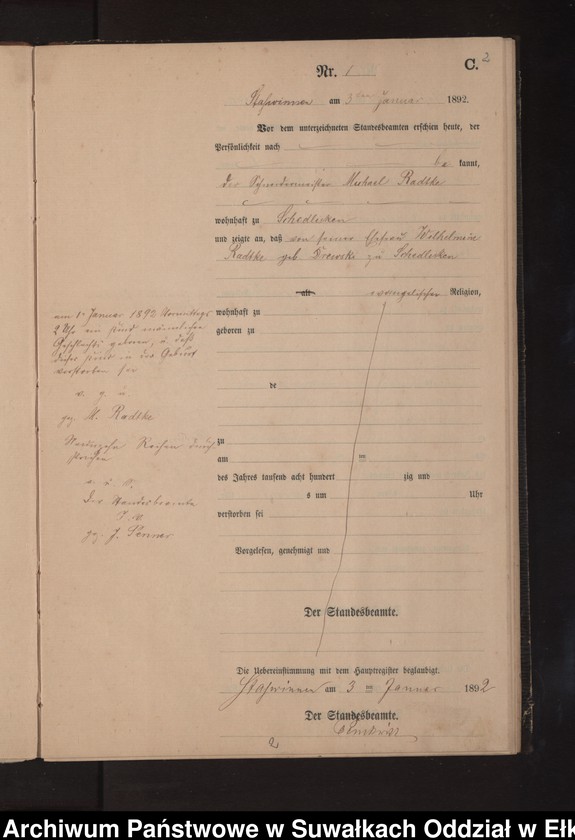 Nr. 1
C. 2
Staswinnen am 3ten Januar 1892.
Vor dem unterzeichneten Standesbeamten erschien heute, der
Persönlichkeit nach
be kannt,
der Schneidermeister Michael Radtke
wohnhaft zu Schedlisken
und zeigte an, daß von seiner Ehefrau Wilhelmine
Radtke geb. zu Schedlisken
alt evangelischer Religion,
wohnhaft zu
geboren zu
am 1. Januar 1892 Vormittags
2 Uhr ein Kind männlichen
Geschlechts geboren, u. daß
dieses Kind in der Geburt
verstorben sei
de
v. g. u.
gez. M. Radtke
zu
am ten
des Jahres tausend acht hundert zig und
s um Uhr
verstorben sei
Reihen durch
strichen
Der Standesbeamte
gez. J.
Vorgelesen, genehmigt und
Der Standesbeamte.
Die Uebereinstimmung mit dem Hauptregister beglaubigt.
Staswinnen am 3 ten Januar 1892
Der Standesbeamte.
2
Archiwum Państwowe w Suwałkach Oddział w Ełk